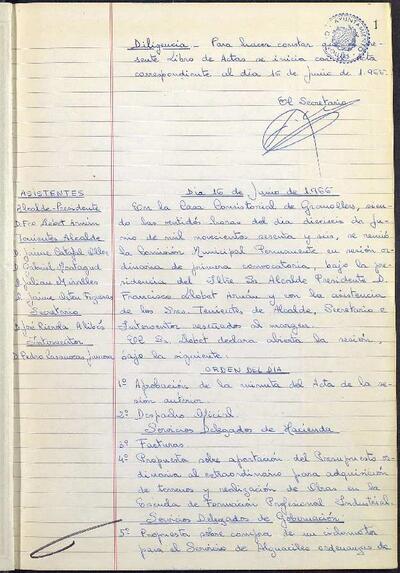 1
Diligencia - Para hacer constar que el pre-
sente Libro de Actas se inicia con el acta
correspondiente al día 16 de junio de 1.966.
El Secretario
ASISTENTES
Alcalde-Presidente
D. Fco Llobet Arnán
Tenientes Alcalde
D. Jaime
D. Gabriel Montagud
D. Julian Miralles
D. Jaime Viñeu Figueras
Secretario
D. José
Interventor
D. Pedro Casanovas
Día 16 de Junio de 1966
En la Casa Consistorial de Granollers, sien-
do las veintidós horas del día dieciseis de ju-
nio de mil novecientos sesenta y seis, se reunió
la Comisión Municipal Permanente en sesión or-
dinaria de primera convocatoria, bajo la pre-
sidencia del Iltre Sr. Alcalde Presidente D.
Francisco Llobet Arnán y con la asistencia
de los Sres. Tenientes de Alcalde, Secretario e
Interventor reseñados al margen.
El Sr. Llobet declara abierta la sesión,
bajo la siguiente:
ORDEN DEL DIA
1º Aprobación de la minuta del Acta de la se-
sión anterior.
2º Despacho Oficial
Servicios Delegados de Hacienda
3º Facturas
4º Propuesta sobre aportación del Presupuesto or-
dinario al extraordinario para adquisición
de terrenos y realización de Obras en la
Escuela de Formación Profesional Industrial.
Servicios Delegados de Gobernación
5º Propuesta sobre compra de un ciclomotor
para el Servicio de Alguaciles ordenanzas de